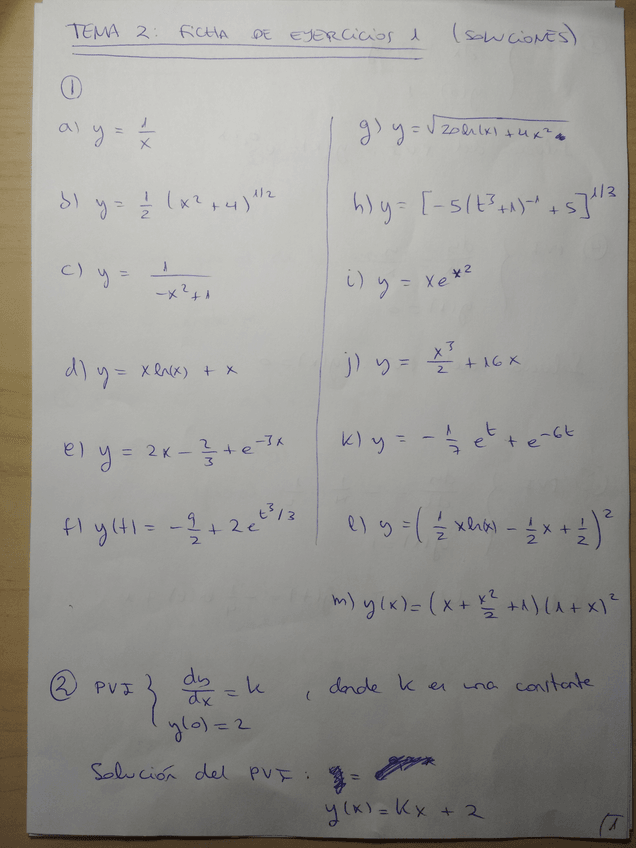 TEMA 2: FICHA DE EJERCICIOS 1 (SOLUCIONES)
①
a) y = 1/x
b) y = 1/2 (x² + 4)^1/2
c) y = 1/(-x² + 1)
d) y = x ln(x) + x
e) y = 2x - 2/3 + e^-3x
f) y(t) = -9/2 + 2e^t³/3
g) y = √(20 ln(x) + 4x²)
h) y = [-5(t³ + 1)^-1 + 5]^1/3
i) y = xe^x²
j) y = x³/2 + 16x
k) y = -1/7 e^t + e^-6t
l) y = (1/2 x ln(x) - 1/2 x + 1/2)²
m) y(x) = (x + x²/2 + 1)(1 + x)²
② PVI { dy/dx = k , donde k es una constante
y(0) = 2
Solución del PVI: y =
y(x) = kx + 2
1